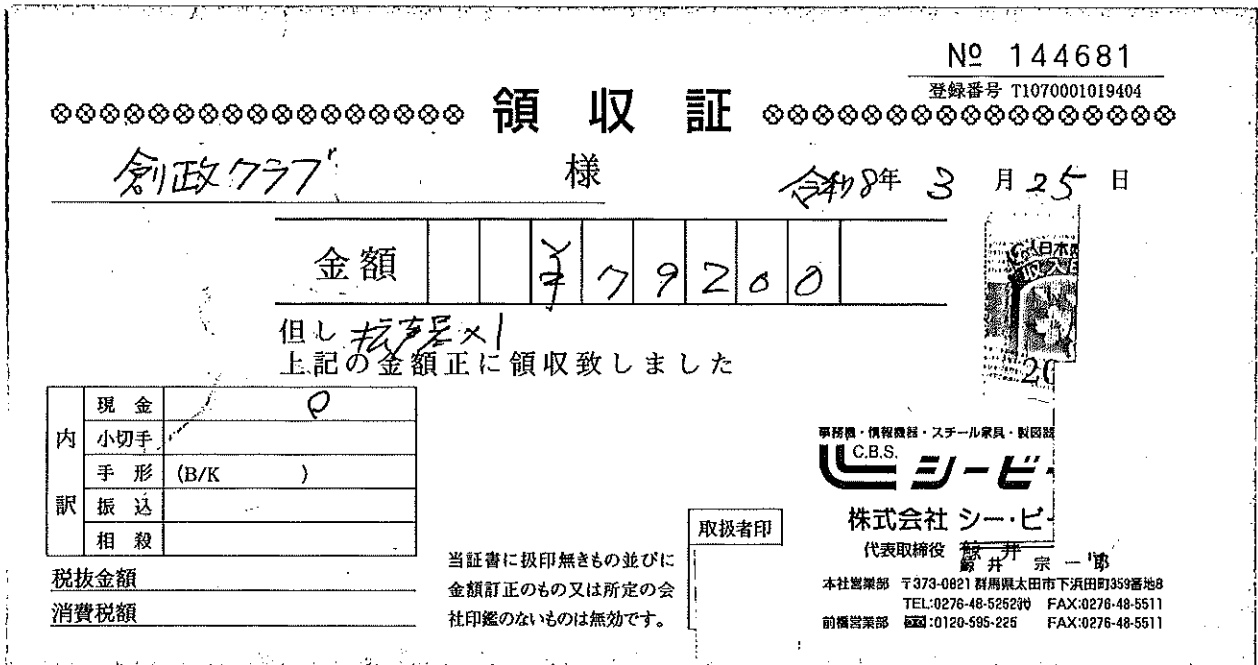 № 144681
登録番号 T1070001019404
領収証
創政クラブ 様
令和8年 3月25日
金額 ¥79200
但し 拡声器×1
上記の金額正に領収致しました
内訳
現金
小切手
手形 (B/K )
振込
相殺
税抜金額
消費税額
当証書に扱印無きもの並びに
金額訂正のもの又は所定の会
社印鑑のないものは無効です。
取扱者印
日本
収入
20
事務機・情報機器・スチール家具・製図器
C.B.S. シービー
株式会社 シー・ビー
代表取締役 鯨井宗一郎
本社営業部 〒373-0821 群馬県太田市下浜田町359番地8
TEL:0276-48-5252代 FAX:0276-48-5511
前橋営業部 :0120-595-225 FAX:0276-48-5511